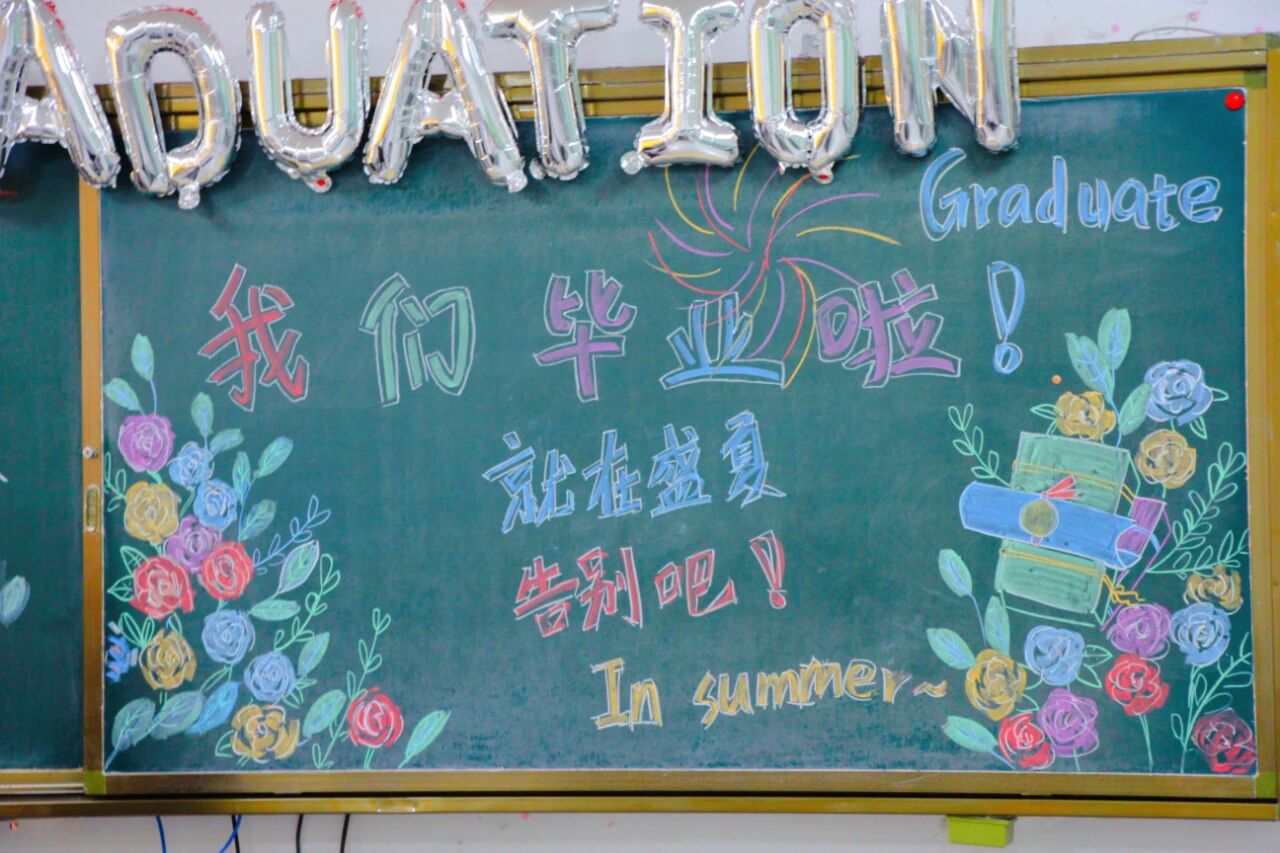 ADUATION
Graduate
我们毕业啦！
就在盛夏
告别吧！
In summer~